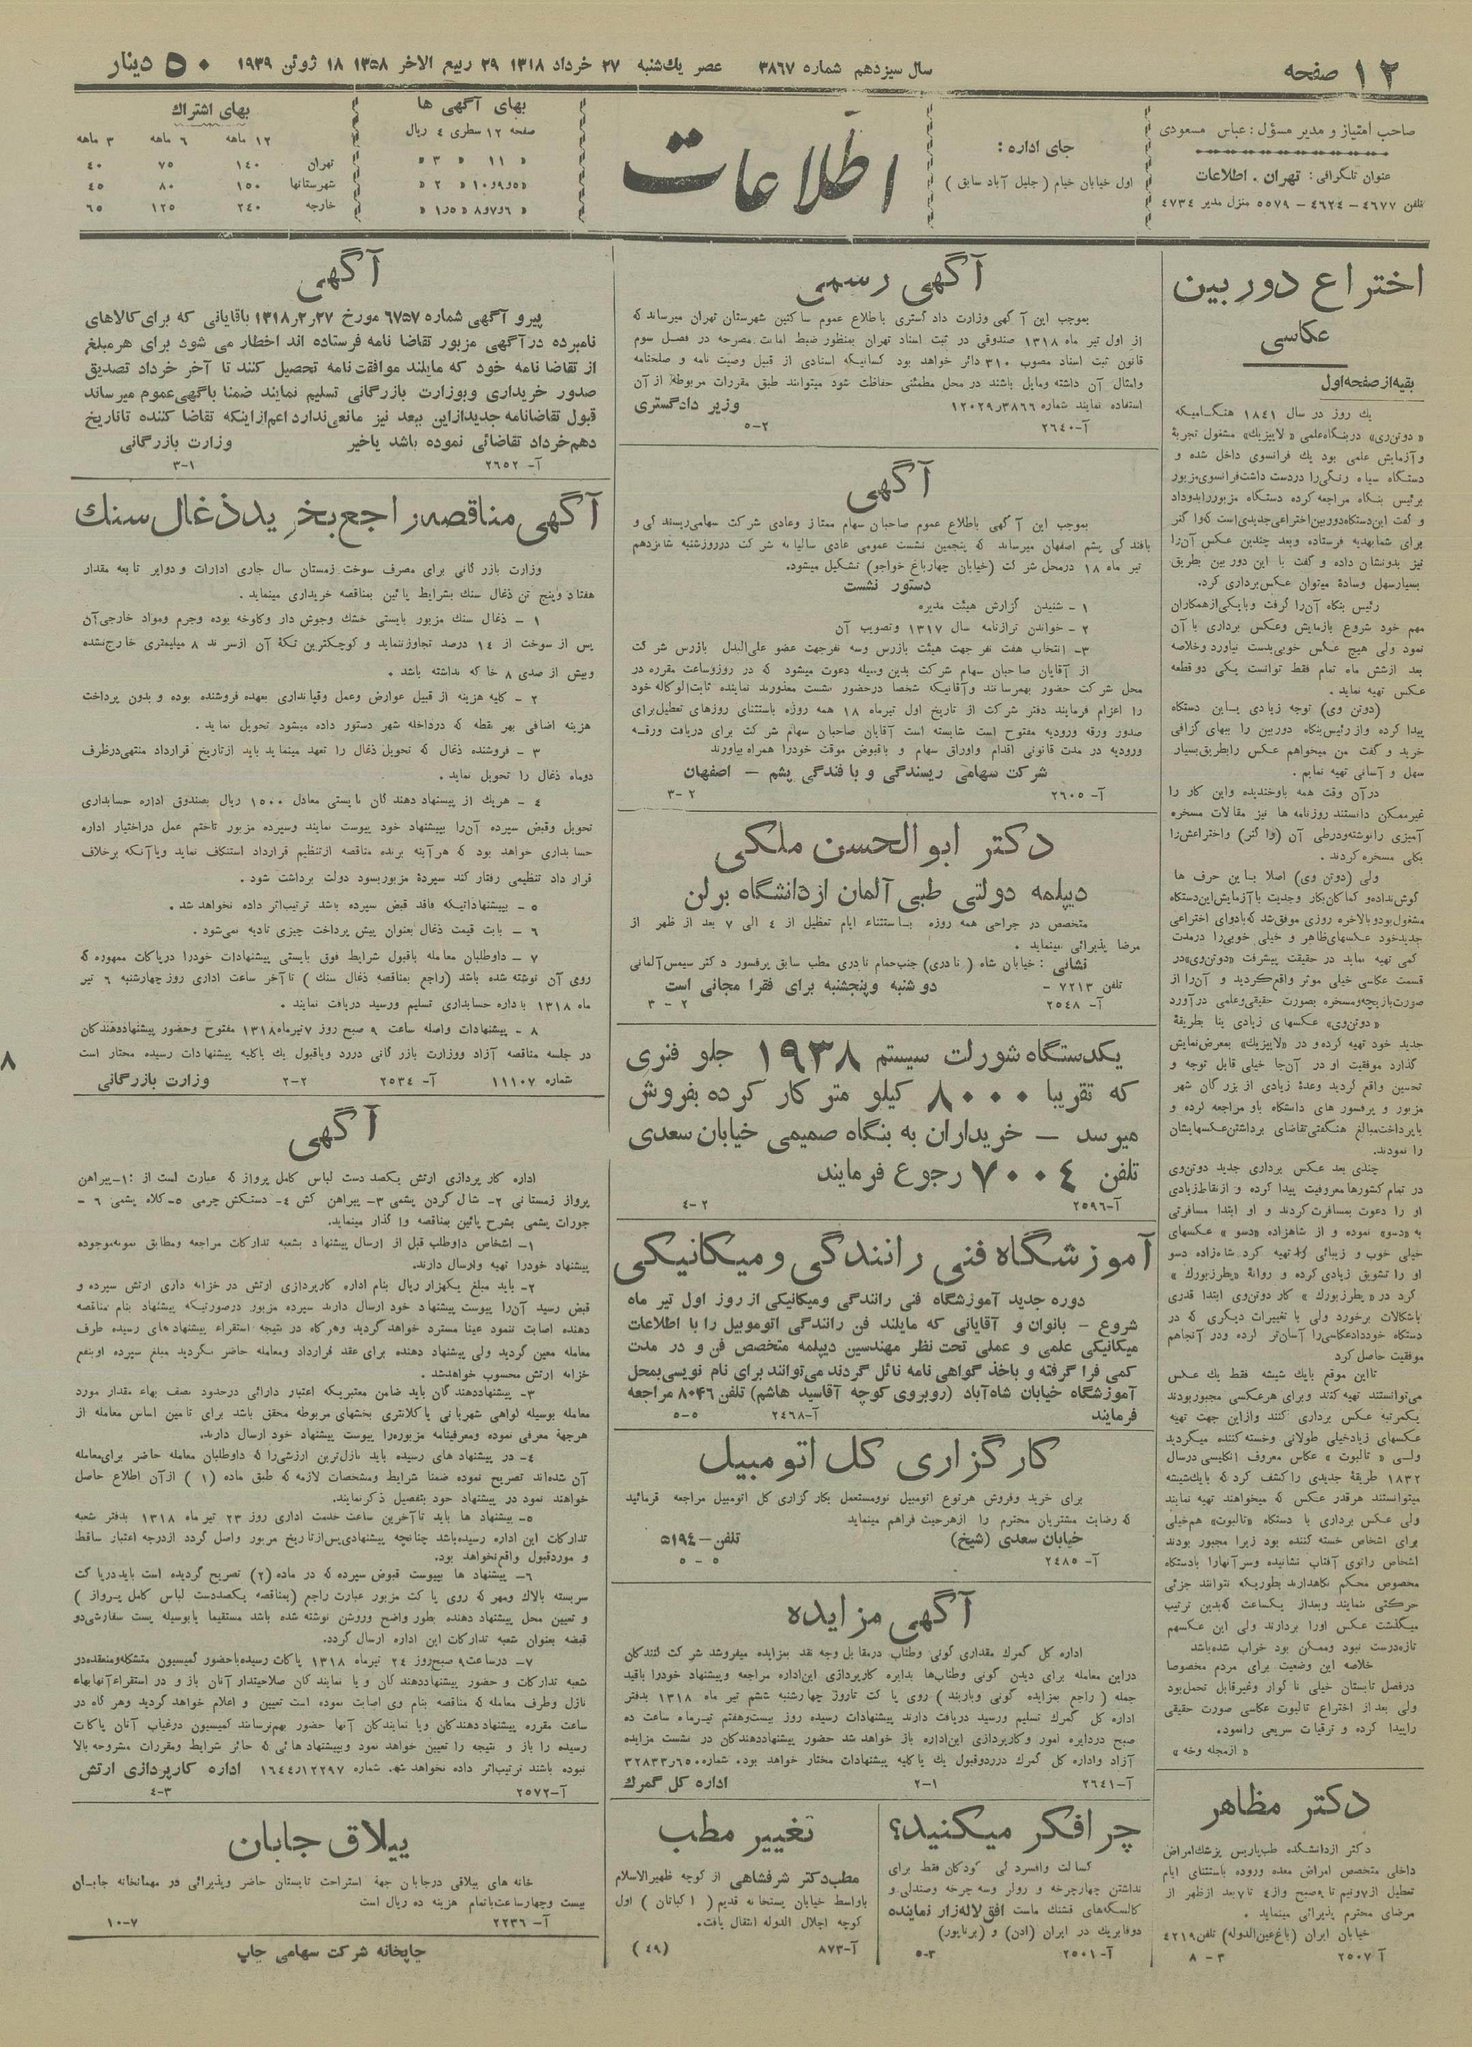 ۱۲ صفحه
سال سیزدهم شماره ۳۸۶۷ عصر یك‌شنبه ۲۷ خرداد ۱۳۱۸ ۲۹ ربیع الاخر ۱۳۵۸ ۱۸ ژوئن ۱۹۳۹
۵۰ دینار
صاحب امتیاز و مدیر مسؤل : عباس مسعودی
عنوان تلگرافی : تهران . اطلاعات
تلفن ۴۶۷۷ - ۴۶۲۴ - ۵۵۷۹ منزل مدیر ۴۷۳۴
جای اداره :
اول خیابان خیام ( جلیل آباد سابق )
اطلاعات
بهای آگهی ها
صفحه ۱۲ سطری ۴ ریال
» ۱۱ » ۳ »
بهای اشتراك
۱۲ ماهه ۶ ماهه ۳ ماهه
تهران ۱۴۰ ۷۵ ۴۰
شهرستانها ۱۵۰ ۸۰ ۴۵
خارجه ۲۴۰ ۱۲۵ ۶۵
اختراع دوربین
عکاسی
بقیه از صفحه اول
یك روز در سال ۱۸۴۱ هنگامیکه
«دوتن‌ری» در بنگاه علمی «لایپزیك» مشغول تجربهٔ
و آزمایش علمی بود یك فرانسوی داخل شده و
دستگاه سیاه رنگی را در دست داشت فرانسوی مزبور
برئیس بنگاه مراجعه کرده دستگاه مزبور را بدو داد
و گفت این دستگاه دوربین اختراعی جدیدی است که دا گر
برای شما بهدیه فرستاده و بعد چندین عکس آن‌را
نیز بدو نشان داده و گفت با این دوربین بطریق
بسیار سهل و سادهٔ میتوان عکس‌برداری کرد.
رئیس بنگاه آن‌را گرفت و بایکی از همکاران
مهم خود شروع بآزمایش و عکس برداری با آن
نمود ولی هیچ عکس خوبی بدست نیاورد و خلاصه
بعد از شش ماه تمام فقط توانست یکی دو قطعه
عکس تهیه نماید .
(دوتن وی) توجه زیادی باین دستگاه
پیدا کرده و از رئیس بنگاه دوربین را ببهای گزافی
خرید و گفت من میخواهم عکس را بطریق بسیار
سهل و آسانی تهیه نمایم .
در آن وقت همه باو خندیده و این کار را
غیر ممکن دانستند روزنامه ها نیز مقالات مسخره
بکلی مسخره کردند .
ولی (دوتن وی) اصلا باین حرف ها
کمی تهیه نماید در حقیقت پیشرفت «دوتن‌وی» در
قسمت عکاسی خیلی موثر واقع گردید و آن‌را از
صورت بازیچه و مسخره بصورت حقیقی و علمی در آورد
«دوتن‌وی» عکسهای زیادی بنا بطریقهٔ
جدید خود تهیه کرده و در «لایپزیك» بمعرض نمایش
گذارد موفقیت او در آن‌جا خیلی قابل توجه و
تحسین واقع گردید وعدهٔ زیادی از بزرگان شهر
مزبور و پرفسور های دانشگاه باو مراجعه کرده و
با پرداخت مبالغ هنگفتی تقاضای برداشتن عکسهایشان
را نمودند.
چندی بعد عکس برداری جدید دوتن‌وی
در تمام کشورها معروفیت پیدا کرده و از نقاط زیادی
او را دعوت بمسافرت کردند و او ابتدا مسافرتی
به «دسو» نموده و از شاهزاده «دسو» عکسهای
خیلی خوب و زیبائی تهیه کرد شاهزاده دسو
او را تشویق زیادی کرده و روانهٔ «پطرزبورك»
کرد در «پطرزبورك» کار دوتن‌وی ابتدا قدری
باشکالات برخورد ولی با تغییرات دیگری که در
دستگاه خود داد عکاسی را آسان‌تر کرده و در آنجا هم
موفقیت حاصل کرد
تا این موقع بایك شیشه فقط یك عکس
می‌توانستند تهیه کنند و برای هر عکسی مجبور بودند
یکمرتبه عکس برداری کنند و از این جهت تهیه
عکسهای زیاد خیلی طولانی و خسته کننده میگردید
ولی «تالبوت» عکاس معروف انگلیسی در سال
۱۸۳۲ طریقهٔ جدیدی را کشف کرد که بایك شیشه
میتوانستند هر قدر عکس که میخواهند تهیه نمایند
ولی عکس برداری با دستگاه «تالبوت» هم خیلی
برای اشخاص خسته کننده بود زیرا مجبور بودند
اشخاص را توی آفتاب نشانیده و سر آنها را با دستگاه
مخصوص محکم نگاهدارند بطوریکه نتوانند جزئی
حرکتی نمایند و بعد از یکساعت که بدین ترتیب
میگذشت عکس او را بردارند ولی این عکس هم
تازه درست نبود و ممکن بود خراب شده باشد
خلاصه این وضعیت برای مردم مخصوصا
در فصل تابستان خیلی ناگوار و غیر قابل تحمل بود
ولی بعد از اختراع تالبوت عکاسی صورت حقیقی
را پیدا کرده و ترقیات سریعی را نمود.
دکتر مظاهر
دکتر از دانشکده طب پاریس پزشك امراض
داخلی متخصص امراض معده و روده باستثنای ایام
تعطیل از ۷ ونیم تا ۹ صبح و از ۴ تا ۷ بعد از ظهر از
مرضای محترم پذیرائی مینماید .
خیابان ایران (باغ عین‌الدوله) تلفن ۴۲۱۹
آ ۲۵۰۷ ۳ - ۸
آگهی رسمی
بموجب این آگهی وزارت دادگستری باطلاع عموم ساکنین شهرستان تهران میرساند که
از اول تیر ماه ۱۳۱۸ صندوقی در ثبت اسناد تهران بمنظور ضبط امانت مصرحه در فصل سوم
قانون ثبت اسناد مصوب ۳۱۰ دائر خواهد بود کسانیکه اسنادی از قبیل وصیت نامه و صلحنامه
و امثال آن داشته و مایل باشند در محل مطمئنی حفاظت شود میتوانند طبق مقررات مربوطه از آن
استفاده نمایند شماره ۱۲۰۲۹٫۳۸۶۶ وزیر دادگستری
آ-۲۶۴۰ ۲-۵
آگهی
بموجب این آگهی باطلاع عموم صاحبان سهام ممتاز و عادی شرکت سهامی ریسندگی و
بافندگی پشم اصفهان میرساند که پنجمین نشست عمومی عادی سالیانه شرکت در روز شنبه شانزدهم
تیر ماه ۱۸ در محل شرکت (خیابان چهارباغ خواجو) تشکیل میشود.
دستور نشست
۱ - شنیدن گزارش هیئت مدیره
۲ - خواندن ترازنامه سال ۱۳۱۷ و تصویب آن
۳- انتخاب هفت نفر جهت هیئت بازرس و سه نفر جهت عضو علی‌البدل بازرس شرکت
از آقایان صاحبان سهام شرکت بدین وسیله دعوت میشود که در روز و ساعت مقرره در
محل شرکت حضور بهمرسانند و آقانیکه شخصا در حضور نشست معذورند نماینده ثابت‌الوکاله خود
را اعزام فرمایند دفتر شرکت از تاریخ اول تیرماه ۱۸ همه روزه باستثنای روزهای تعطیل برای
صدور ورقه ورودیه مفتوح است شایسته است آقایان صاحبان سهام شرکت برای دریافت ورقه
ورودیه در مدت قانونی اقدام و اوراق سهام و یا قبوض موقت خود را همراه بیاورند
شرکت سهامی ریسندگی و بافندگی پشم - اصفهان
آ- ۲۶۰۵ ۲ -۳
دکتر ابوالحسن ملکی
دیپلمه دولتی طبی آلمان از دانشگاه برلن
متخصص در جراحی همه روزه باستثناء ایام تعطیل از ۴ الی ۷ بعد از ظهر از
مرضا پذیرائی مینماید .
نشانی : خیابان شاه (نادری) جنب حمام نادری مطب سابق پرفسور دکتر سیمس آلمانی
تلفن ۷۲۱۳ - دوشنبه و پنجشنبه برای فقرا مجانی است
آ- ۲۵۴۸ ۲ - ۳
یکدستگاه شورلت سیستم ۱۹۳۸ جلو فنری
که تقریبا ۸۰۰۰ کیلو متر کار کرده بفروش
میرسد - خریداران به بنگاه صمیمی خیابان سعدی
تلفن ۷۰۰۴ رجوع فرمایند
آ-۲۵۹۶ ۲-۴
آموزشگاه فنی رانندگی و میکانیکی
دوره جدید آموزشگاه فنی رانندگی و میکانیکی از روز اول تیر ماه
شروع - بانوان و آقایانی که مایلند فن رانندگی اتوموبیل را با اطلاعات
میکانیکی علمی و عملی تحت نظر مهندسین دیپلمه متخصص فن و در مدت
کمی فرا گرفته و باخذ گواهی نامه نائل گردند می‌توانند برای نام نویسی بمحل
آموزشگاه خیابان شاه‌آباد (روبروی کوچه آقاسید هاشم) تلفن ۸۰۴۶ مراجعه
فرمایند آ-۲۴۶۸ ۵-۵
کارگزاری کل اتومبیل
برای خرید و فروش هر نوع اتومبیل نو و مستعمل بکارگزاری کل اتومبیل مراجعه فرمائید
که رضایت مشتریان محترم را از هر حیث فراهم مینماید
خیابان سعدی (شیخ) تلفن-۵۱۹۴
آ- ۲۴۸۵ ۵ - ۵
آگهی مزایده
اداره کل گمرك مقداری گونی و طناب در مقابل وجه نقد بمزایده میفروشد شرکت کنندگان
در این معامله برای دیدن گونی و طناب‌ها بدایره کارپردازی این اداره مراجعه و پیشنهاد خود را باقید
جمله ( راجع بمزایده گونی و باربند ) روی پاکت تا روز چهارشنبه ششم تیر ماه ۱۳۱۸ بدفتر
اداره کل گمرك تسلیم و رسید دریافت دارند پیشنهادات رسیده روز بیست‌و‌هفتم تیرماه ساعت ده
صبح در دایره امور و کارپردازی این اداره باز خواهد شد حضور پیشنهاددهندگان در نشست مزایده
آزاد و اداره کل گمرك در رد و قبول یك یا کلیه پیشنهادات مختار خواهد بود.
آ-۲۶۴۱ ۱-۲ اداره کل گمرك
چرا فکر میکنید؟
کسالت و افسردگی کودکان فقط برای
نداشتن چهارچرخه و رولر و سه چرخه و صندلی و
کالسکه‌های قشنگ ماست افق لاله‌زار نماینده
دوفابریك در ایران (ادن) و (برنابور)
آ-۲۵۰۱ ۳-۵
تغییر مطب
مطب دکتر شرفشاهی از کوچه ظهیرالاسلام
باواسط خیابان پستخانه قدیم ( اکباتان ) اول
کوچه اجلال الدوله انتقال یافت.
آ-۸۷۳ (۴۹)
آگهی
پیرو آگهی شماره ۶۷۵۷ مورخ ۲۷ر۲ر۱۳۱۸ باقایانی که برای کالاهای
نامبرده در آگهی مزبور تقاضا نامه فرستاده اند اخطار می شود برای هر مبلغ
از تقاضا نامه خود که مایلند موافقت نامه تحصیل کنند تا آخر خرداد تصدیق
صدور خریداری و بوزارت بازرگانی تسلیم نمایند ضمنا باگهی عموم میرساند
قبول تقاضانامه جدید از این ببعد نیز مانعی ندارد اعم از اینکه تقاضا کننده تا تاریخ
دهم خرداد تقاضائی نموده باشد یا خیر وزارت بازرگانی
آ- ۲۶۵۲ ۱-۳
آگهی مناقصه راجع بخرید ذغال سنك
وزارت بازرگانی برای مصرف سوخت زمستان سال جاری ادارات و دوایر تابعه مقدار
هفتاد و پنج تن ذغال سنك بشرایط پائین بمناقصه خریداری مینماید .
۱ - ذغال سنك مزبور بایستی خشك و جوش دار و کلوخه بوده و جرم و مواد خارجی آن
پس از سوخت از ۱۴ درصد تجاوز ننماید و کوچکترین تکهٔ آن از سرند ۸ میلیمتری خارج نشده
و بیش از صدی ۸ خاکه نداشته باشد .
۲ - کلیه هزینه از قبیل عوارض و حمل و قپانداری بعهده فروشنده بوده و بدون پرداخت
هزینه اضافی بهر نقطه که در داخله شهر دستور داده میشود تحویل نماید .
۳ - فروشنده ذغال که تحویل ذغال را تعهد مینماید باید از تاریخ قرارداد منتهی در ظرف
دو ماه ذغال را تحویل نماید .
۴ - هر یك از پیشنهاد دهندگان بایستی معادل ۱۵۰۰ ریال بصندوق اداره حسابداری
تحویل و قبض سپرده آن‌را بپیشنهاد خود پیوست نمایند و سپرده مزبور تا ختم عمل در اختیار اداره
حسابداری خواهد بود که هر آینه برنده مناقصه از تنظیم قرارداد استنکاف نماید و یا آنکه برخلاف
قرار داد تنظیمی رفتار کند سپردهٔ مزبور بسود دولت برداشت شود .
۵ - بپیشنهاداتیکه فاقد قبض سپرده باشد ترتیب‌اثر داده نخواهد شد .
۶ - بابت قیمت ذغال بعنوان پیش پرداخت چیزی تادیه نمی‌شود .
۷ - داوطلبان معامله باقبول شرایط فوق بایستی پیشنهادات خود را در پاکات ممهوره که
روی آن نوشته شده باشد (راجع بمناقصه ذغال سنك ) تا آخر ساعت اداری روز چهارشنبه ۶ تیر
ماه ۱۳۱۸ باداره حسابداری تسلیم و رسید دریافت نمایند .
۸ - پیشنهادات واصله ساعت ۹ صبح روز ۷ تیرماه ۱۳۱۸ مفتوح و حضور پیشنهاددهندگان
در جلسه مناقصه آزاد و وزارت بازرگانی در رد و یا قبول یك یا کلیه پیشنهادات رسیده مختار است
شماره ۱۱۱۰۷ آ- ۲۵۳۴ ۲-۲ وزارت بازرگانی
آگهی
اداره کارپردازی ارتش یکصد دست لباس کامل پرواز که عبارت است از : ۱-پیراهن
پرواز زمستانی ۲- شال گردن پشمی ۳- پیراهن کش ۴- دستکش چرمی ۵-کلاه پشمی ۶ -
جوراب پشمی بشرح پائین بمناقصه واگذار مینماید.
۱- اشخاص داوطلب قبل از ارسال پیشنهاد بشعبه تدارکات مراجعه و مطابق نمونه موجوده
پیشنهاد خود را تهیه و ارسال دارند.
۲- باید مبلغ یکهزار ریال بنام اداره کارپردازی ارتش در خزانه داری ارتش سپرده و
قبض رسید آن‌را پیوست پیشنهاد خود ارسال دارند سپرده مزبور در صورتیکه پیشنهاد بنام مناقصه
دهنده اصابت ننمود عینا مسترد خواهد گردید و هرگاه در نتیجه استقراء پیشنهاد های رسیده طرف
معامله معین گردید ولی پیشنهاد دهنده برای عقد قرارداد و معامله حاضر نگردید مبلغ سپرده او بنفع
خزانه ارتش محسوب خواهد شد .
۳- پیشنهاددهندگان باید ضامن معتبریکه اعتبار دارائی در حدود نصف بهاء مقدار مورد
معامله بوسیله گواهی شهربانی یا کلانتری بخشهای مربوطه محقق باشد برای تامین اساس معامله از
هر جهة معرفی نموده و معرفینامه مزبوره را پیوست پیشنهاد خود ارسال دارند.
۴- در پیشنهاد های رسیده باید نازل‌ترین ارزشی را که داوطلبان معامله حاضر برای معامله
آن شده‌اند تصریح نموده ضمنا شرایط و مشخصات لازمه که طبق ماده (۱) از آن اطلاع حاصل
خواهند نمود در پیشنهاد خود بتفصیل ذکر نمایند.
۵- پیشنهاد ها باید تا آخرین ساعت خدمت اداری روز ۲۳ تیر ماه ۱۳۱۸ بدفتر شعبه
تدارکات این اداره رسیده باشد چنانچه پیشنهادی پس از تاریخ مزبور واصل گردد از درجه اعتبار ساقط
و مورد قبول واقع نخواهد بود.
۶- پیشنهاد ها بپیوست قبوض سپرده که در ماده (۲) تصریح گردیده است باید در پاکت
سربسته بالاك و مهر که روی پاکت مزبور عبارت راجع (بمناقصه یکصددست لباس کامل پرواز )
و تعیین محل پیشنهاد دهنده بطور واضح و روشن نوشته شده باشد مستقیما یا بوسیله پست سفارشی دو
قبضه بعنوان شعبه تدارکات این اداره ارسال گردد.
۷- در ساعت ۹ صبح روز ۲۴ تیرماه ۱۳۱۸ پاکات رسیده باحضور کمیسیون متشکله و منعقده در
شعبه تدارکات و حضور پیشنهاددهندگان و یا نمایندگان صلاحیتدار آنان باز و در استقراء آنها بهاء
نازل و طرف معامله که مناقصه بنام وی اصابت نموده است تعیین و اعلام خواهد گردید و هرگاه در
ساعت مقرره پیشنهاد دهندگان و یا نمایندگان آنها حضور بهم نرسانند کمیسیون در غیاب آنان پاکات
رسیده را باز و نتیجه را تعیین خواهد نمود و بپیشنهاد هائی که حائز شرایط و مقررات مشروحه بالا
نبوده باشند ترتیب‌اثر داده نخواهد شد. شماره ۱۶۴۴٫۱۲۲۹۷ اداره کارپردازی ارتش
آ-۲۵۷۲ ۳-۴
ییلاق جابان
خانه های ییلاقی در جابان جهة استراحت تابستان حاضر و پذیرائی در مهمانخانه جابان
بیست و چهار ساعت باتمام هزینه ده ریال است
آ- ۲۲۳۶ ۷-۱۰
چاپخانه شرکت سهامی چاپ
۸